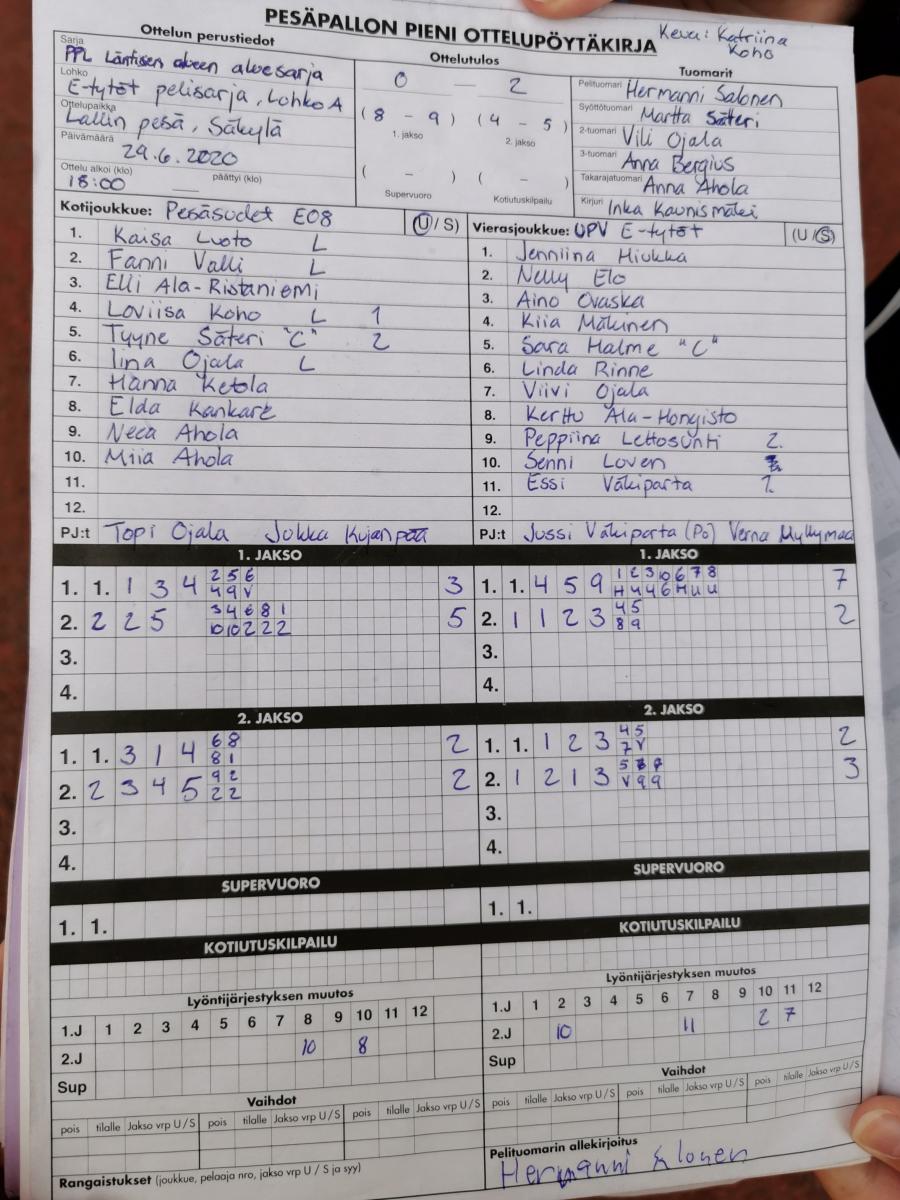 PESÄPALLON PIENI OTTELUPÖYTÄKIRJA
Keva: Katriina
Koho
Ottelun perustiedot
Sarja
PPL Läntisen alueen aluesarja
Lohko
E-tytöt pelisarja, Lohko A
Ottelupaikka
Lallin pesä, Säkylä
Päivämäärä
29.6.2020
Ottelu alkoi (klo) päättyi (klo)
18:00 —
Ottelutulos
0 — 2
(8 - 9) (4 - 5)
1. jakso 2. jakso
( - ) ( - )
Supervuoro Kotiutuskilpailu
Tuomarit
Pelituomari Hermanni Salonen
Syöttötuomari Martta Säteri
2-tuomari Vili Ojala
3-tuomari Anna Bergius
Takarajatuomari Anna Ahola
Kirjuri Inka Kaunismäki
Kotijoukkue: Pesäsudet E08 (U/S)
1. Kaisa Luoto L
2. Fanni Valli L
3. Elli Ala-Ristaniemi
4. Loviisa Koho L 1
5. Tyyne Säteri "C" 2
6. Iina Ojala L
7. Hanna Ketola
8. Elda Kankare
9. Neea Ahola
10. Miia Ahola
11.
12.
PJ:t Topi Ojala Jukka Kujanpää
Vierasjoukkue: UPV E-tytöt (U/S)
1. Jenniina Hiukka
2. Nelly Elo
3. Aino Ovaska
4. Kiia Mäkinen
5. Sara Halme "C"
6. Linda Rinne
7. Viivi Ojala
8. Kerttu Ala-Hongisto
9. Peppiina Lettosunti 2.
10. Senni Loven
11. Essi Väkiparta 1.
12.
PJ:t Jussi Väkiparta (Po) Verna Myllymaa
1. JAKSO
1. 1. 1 3 4 2 5 6 3
4 9 V
2. 2 2 5 3 4 6 8 1 5
10 10 2 2 2
3.
4.
1. JAKSO
1. 1. 4 5 9 1 2 3 10 6 7 8 7
H 4 4 6 H U U
2. 1 1 2 3 4 5 2
8 9
3.
4.
2. JAKSO
1. 1. 3 1 4 6 8 2
8 1
2. 2 3 4 5 9 2 2
2 2
3.
4.
2. JAKSO
1. 1. 1 2 3 4 5 2
7 V
2. 1 2 1 3 5 3
V 9 9
3.
4.
SUPERVUORO
1. 1.
SUPERVUORO
1. 1.
KOTIUTUSKILPAILU
KOTIUTUSKILPAILU
Lyöntijärjestyksen muutos
1.J 1 2 3 4 5 6 7 8 9 10 11 12
2.J 10 8
Sup
Lyöntijärjestyksen muutos
1.J 1 2 3 4 5 6 7 8 9 10 11 12
2.J 10 11 2 7
Sup
Vaihdot
pois tilalle Jakso vrp U/S pois tilalle Jakso vrp U/S pois tilalle Jakso vrp U/S
Vaihdot
pois tilalle Jakso vrp U/S pois tilalle Jakso vrp U/S pois tilalle Jakso vrp U/S
Rangaistukset (joukkue, pelaaja nro, jakso vrp U / S ja syy)
Pelituomarin allekirjoitus
Hermanni Salonen